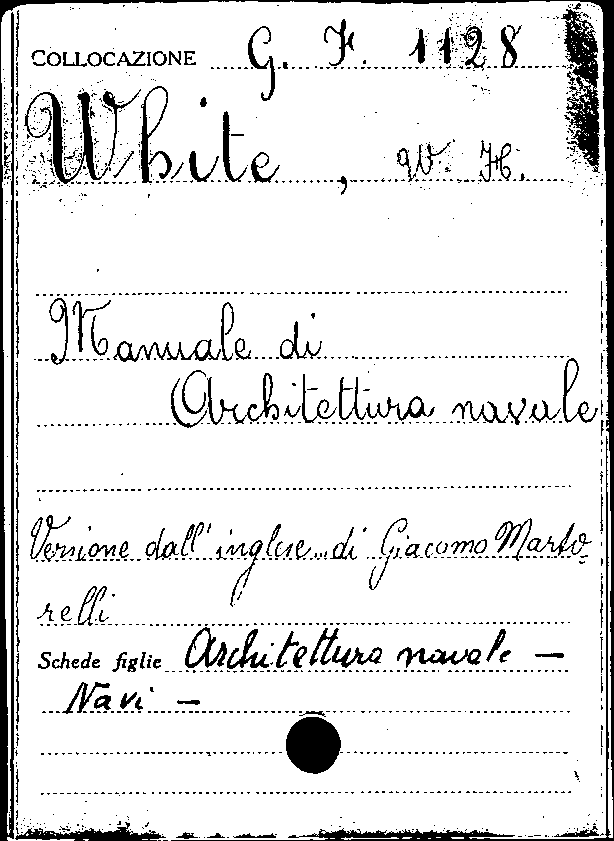 COLLOCAZIONE G. F. 1128
White, W. H.
Manuale di
Architettura navale
Versione dall'inglese...di Giacomo Marto-
relli
Schede figlie Architettura navale —
Navi —